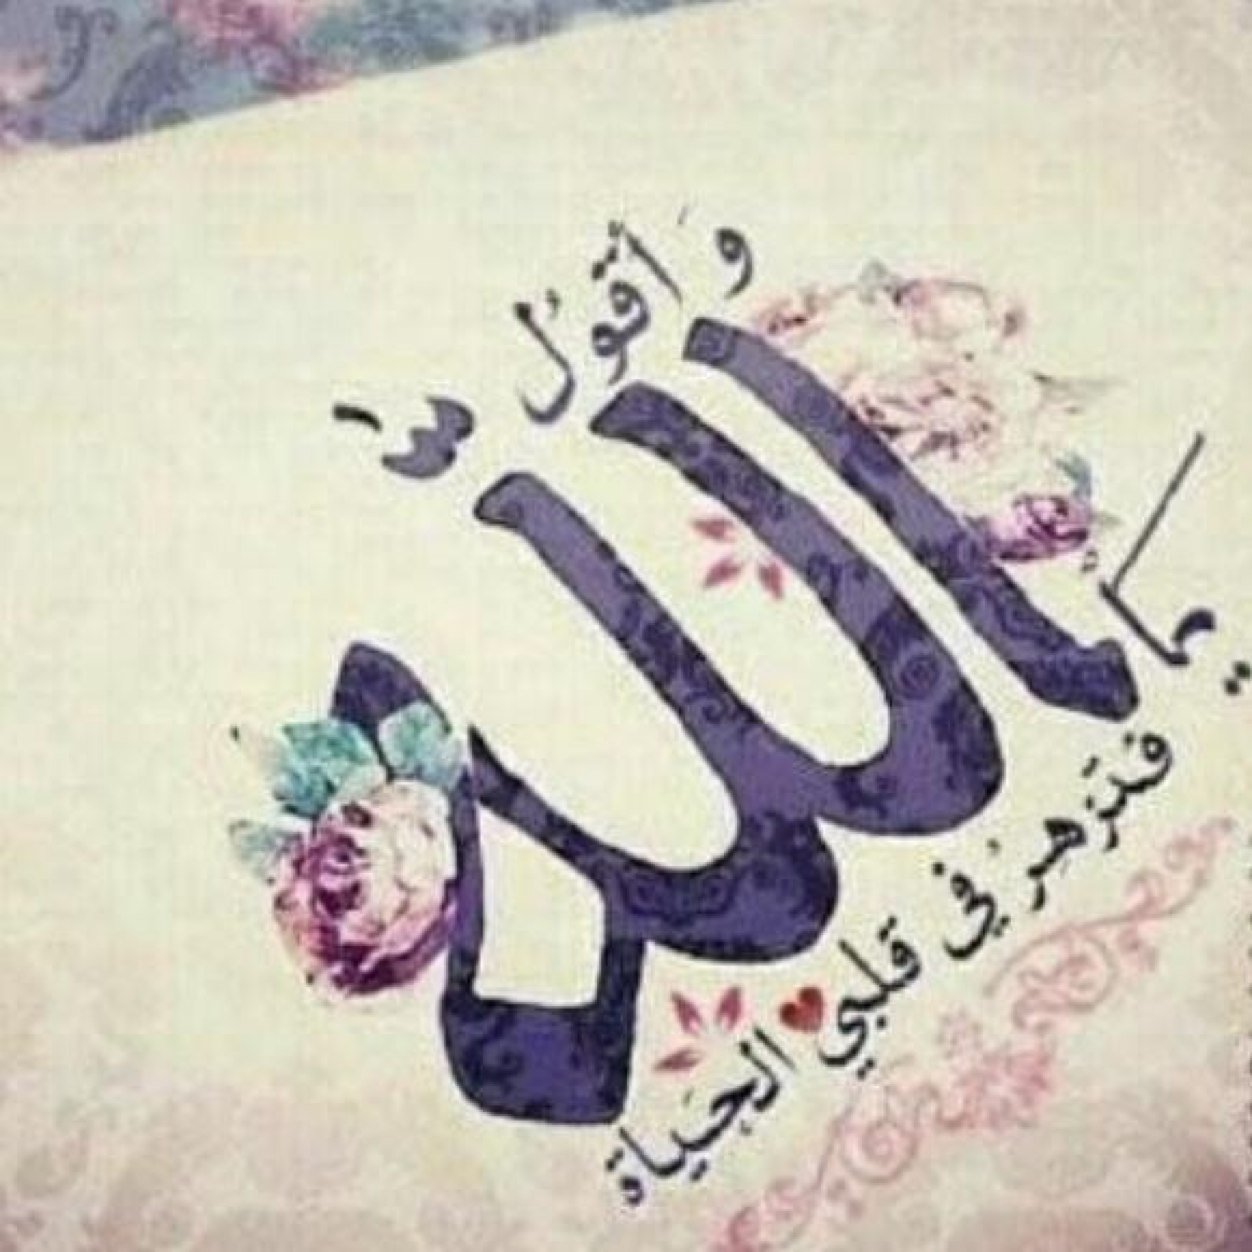 وَأقولُ
يا
الله
فتزهرَ في قلبي الحياة